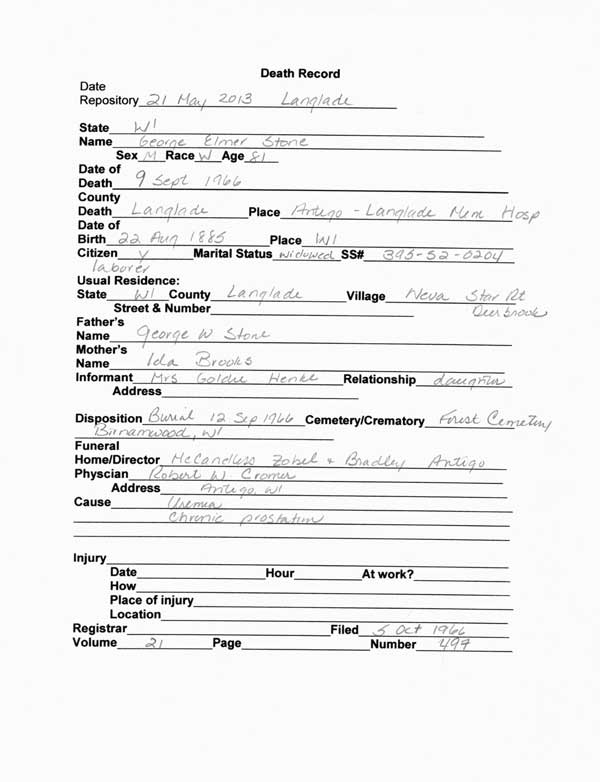 Death Record
Date
Repository 21 May 2013 Langlade
State WI
Name George Elmer Stone
Sex M Race W Age 81
Date of
Death 9 Sept 1966
County
Death Langlade Place Antigo - Langlade Mem Hosp
Date of
Birth 22 Aug 1885 Place WI
Citizen y Marital Status widowed SS# 395-52-0204
laborer
Usual Residence:
State WI County Langlade Village Neva Star Rt
Street & Number Deerbrook
Father's
Name George W Stone
Mother's
Name Ida Brooks
Informant Mrs Goldie Henke Relationship daughter
Address
Disposition Burial 12 Sep 1966 Cemetery/Crematory Forest Cemetery
Birnamwood, WI
Funeral
Home/Director McCandless Zobel & Bradley Antigo
Physcian Robert W Cromer
Address Antigo, WI
Cause Uremia
Chronic
Injury
Date Hour At work?
How
Place of injury
Location
Registrar Filed 5 Oct 1966
Volume 21 Page Number 497